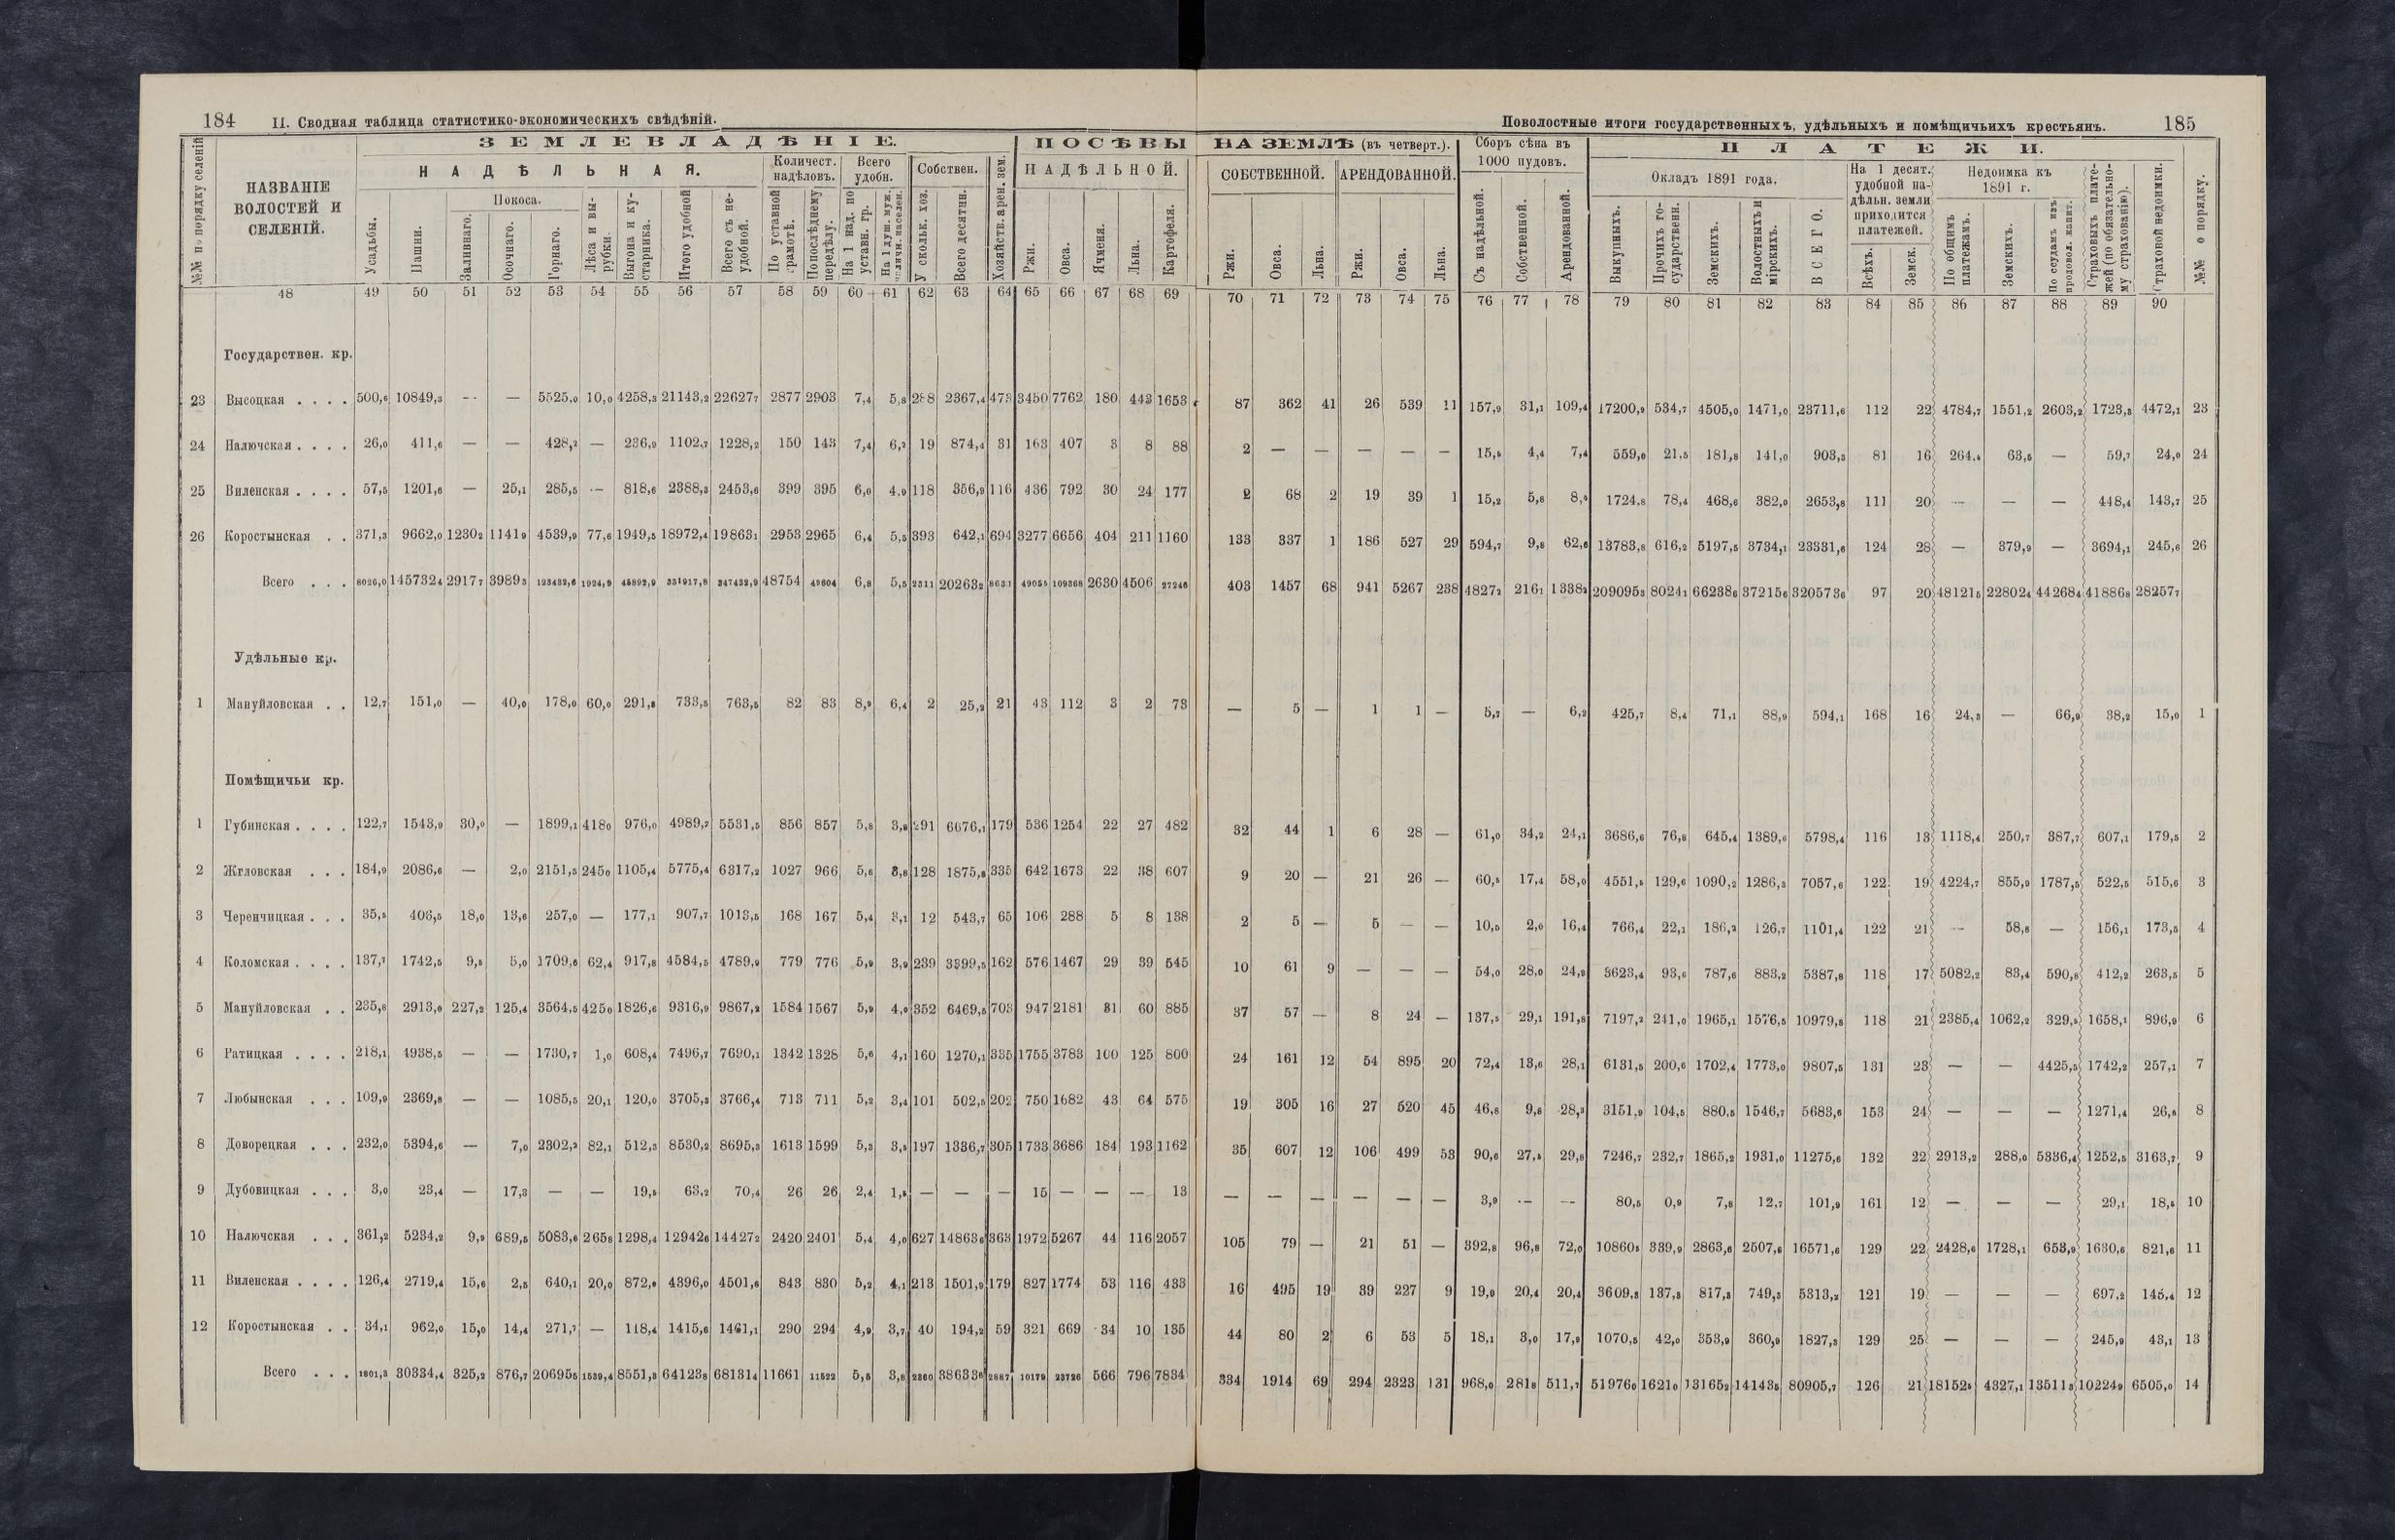 184 II. Сводная таблица статистико-экономическихъ свѣдѣній.
Поволостные итоги государственныхъ, удѣльныхъ и помѣщичьихъ крестьянъ. 185
ЗЕМЛЕВЛАДѢНІЕ. ПОСѢВЫ НА ЗЕМЛѢ (въ четверт.). Сборъ сѣна въ 1000 пудовъ. ПЛАТЕЖИ.
НАДѢЛЬНАЯ. Количест. надѣловъ. Всего удобн. Собствен. НАДѢЛЬНОЙ. СОБСТВЕННОЙ. АРЕНДОВАННОЙ. Окладъ 1891 года. На 1 десят. удобной надѣльн. земли приходится платежей. Недоимка къ 1891 г.
НАЗВАНІЕ ВОЛОСТЕЙ И СЕЛЕНІЙ.
Усадьбы. Пашни. Покоса. Заливнаго. Осочнаго. Горнаго. Лѣса и вырубки. Выгона и кустарника. Итого удобной Всего съ неудобной. По уставной грамотѣ. По послѣднему передѣлу. На 1 над. по уставн. гр. На 1 душ. муж. наличн. населен. У скольк. хоз. Всего десятин. Хозяйств. арен. зем. Ржи. Овса. Ячменя. Льна. Картофеля.
Ржи. Овса. Льна. Ржи. Овса. Льна. Съ надѣльной. Собственной. Арендованной. Выкупныхъ. Прочихъ государственн. Земскихъ. Волостныхъ и мірскихъ. ВСЕГО. Всѣхъ. Земск. По общимъ платежамъ. Земскихъ. По ссудамъ изъ продовол. капит. Страховыхъ платежей (по обязательному страхованію). Страховой недоимки.
48 49 50 51 52 53 54 55 56 57 58 59 60 61 62 63 64 65 66 67 68 69 70 71 72 73 74 75 76 77 78 79 80 81 82 83 84 85 86 87 88 89 90
Государствен. кр.
23 Высоцкая . . . . 500,6 10849,3 — — 5525,0 10,0 4258,3 21143,2 22627,7 2877 2903 7,4 5,8 288 2367,4 473 3450 7762 180 443 1653 87 362 41 26 539 11 157,9 31,1 109,4 17200,9 534,7 4505,0 1471,0 23711,6 112 22 4784,7 1551,2 2603,2 1723,8 4472,1 23
24 Налючская . . . . 26,0 411,6 — — 428,2 — 236,9 1102,7 1228,2 150 143 7,4 6,2 19 874,4 31 163 407 3 8 88 2 — — — — — 15,5 4,4 7,4 559,0 21,5 181,8 141,0 903,3 81 16 264,4 63,5 — 59,7 24,0 24
25 Виленская . . . . 57,5 1201,6 — 25,1 285,5 — 818,6 2388,3 2453,6 399 395 6,0 4,9 118 356,9 116 436 792 30 24 177 2 68 2 19 39 1 15,2 5,8 8,5 1724,8 78,4 468,6 382,0 2653,8 111 20 — — — 448,4 143,7 25
26 Коростынская . . 371,3 9662,0 1230,2 1141,9 4539,9 77,6 1949,5 18972,4 19863,1 2953 2965 6,4 5,5 393 642,1 694 3277 6656 404 211 1160 133 337 1 186 527 29 594,7 9,8 62,6 13783,8 616,2 5197,5 3734,1 23331,6 124 28 — 379,9 — 3694,1 245,6 26
Всего . . . 8026,0 145732,4 2917,7 3989,3 123432,6 1924,9 45892,9 331917,8 347432,9 48754 49604 6,8 5,5 2311 20263,2 8631 49055 109368 2630 4506 27246 403 1457 68 941 5267 238 4827,2 216,1 1338,2 209095,3 8024,1 66238,6 37215,6 320573,6 97 20 48121,5 22802,4 44268,4 41886,8 28257,7
Удѣльные кр.
1 Мануйловская . . 12,7 151,0 — 40,0 178,0 60,0 291,8 733,5 763,5 82 83 8,9 6,4 2 25,2 21 43 112 3 2 73 — 5 — 1 1 — 5,7 — 6,2 425,7 8,4 71,1 88,9 594,1 168 16 24,3 — 66,9 38,2 15,0 1
Помѣщичьи кр.
1 Губинская . . . . 122,7 1543,9 30,0 — 1899,1 418,0 976,0 4989,7 5531,5 856 857 5,8 3,8 291 6076,1 179 536 1254 22 27 482 32 44 1 6 28 — 61,0 34,2 24,1 3686,6 76,8 645,4 1389,6 5798,4 116 13 1118,4 250,7 387,7 607,1 179,5 2
2 Жгловская . . . 184,9 2086,6 — 2,0 2151,5 245,0 1105,4 5775,4 6317,2 1027 966 5,6 3,8 128 1875,8 335 642 1673 22 38 607 9 20 — 21 26 — 60,5 17,4 58,0 4551,5 129,6 1090,2 1286,3 7057,6 122 19 4224,7 855,9 1787,5 522,5 515,6 3
3 Черенчицкая . . . 35,5 406,5 18,0 13,6 257,0 — 177,1 907,7 1013,5 168 167 5,4 3,1 12 543,7 65 106 288 5 8 138 2 5 — 5 — — 10,5 2,0 16,4 766,4 22,1 186,2 126,7 1101,4 122 21 — 58,8 — 156,1 173,5 4
4 Коломская . . . . 137,7 1742,5 9,5 5,0 1709,6 62,4 917,8 4584,5 4789,9 779 776 5,9 3,9 239 3399,5 162 576 1467 29 39 545 10 61 9 — — — 54,0 28,0 24,9 3623,4 93,6 787,6 883,2 5387,8 118 17 5082,2 83,4 590,6 412,2 263,5 5
5 Мануйловская . . 235,8 2913,0 227,2 125,4 3564,5 425,0 1826,6 9316,9 9867,2 1584 1567 5,9 4,0 352 6469,5 703 947 2181 81 60 885 37 57 — 8 24 — 137,5 29,1 191,8 7197,2 241,0 1965,1 1576,5 10979,8 118 21 2385,4 1062,2 329,5 1658,1 896,9 6
6 Ратицкая . . . . 218,1 4938,5 — — 1730,7 1,0 608,4 7496,7 7690,1 1342 1328 5,6 4,1 160 1270,1 335 1755 3783 100 125 800 24 161 12 54 895 20 72,4 13,6 28,1 6131,5 200,6 1702,4 1773,0 9807,5 131 23 — — 4425,5 1742,2 257,1 7
7 Любынская . . . 109,9 2369,8 — — 1085,5 20,1 120,0 3705,3 3766,4 713 711 5,2 3,4 101 502,5 202 750 1682 43 64 575 19 305 16 27 520 45 46,8 9,8 28,3 3151,9 104,5 880,5 1546,7 5683,6 153 24 — — — 1271,4 26,8 8
8 Доворецкая . . . 232,0 5394,6 — 7,0 2302,2 82,1 512,3 8530,2 8695,3 1613 1599 5,3 3,5 197 1336,7 305 1733 3686 184 193 1162 35 607 12 106 499 53 90,6 27,5 29,8 7246,7 232,7 1865,2 1931,0 11275,6 132 22 2913,2 288,0 5336,4 1252,5 3163,7 9
9 Дубовицкая . . . 3,0 23,4 — 17,3 — — 19,5 63,2 70,4 26 26 2,4 1,8 — — — 15 — — — 13 — — — — — — 3,9 — — 80,5 0,9 7,8 12,7 101,9 161 12 — — — 29,1 18,5 10
10 Налючская . . . 361,2 5234,2 9,9 689,5 5083,6 265,8 1298,4 12942,6 14427,2 2420 2401 5,4 4,0 627 14863,6 363 1972 5267 44 116 2057 105 79 — 21 51 — 392,8 96,8 72,0 10860,5 339,9 2863,6 2507,6 16571,6 129 22 2428,6 1728,1 653,9 1630,6 821,6 11
11 Виленская . . . . 126,4 2719,4 15,6 2,5 640,1 20,0 872,0 4396,0 4501,6 843 830 5,2 4,1 213 1501,9 179 827 1774 53 116 433 16 495 19 39 227 9 19,9 20,4 20,4 3609,8 137,3 817,8 749,3 5313,2 121 19 — — — 697,2 145,4 12
12 Коростынская . . 34,1 962,0 15,0 14,4 271,7 — 118,4 1415,6 1461,1 290 294 4,9 3,7 40 194,2 59 321 669 34 10 135 44 80 2 6 53 5 18,1 3,0 17,9 1070,5 42,0 353,9 360,9 1827,3 129 25 — — — 245,9 43,1 13
Всего . . . 1801,3 30334,4 325,2 876,7 20695,5 1539,4 8551,3 64123,8 68131,4 11661 11522 5,5 3,8 2360 38633,6 2887 10179 23726 566 796 7834 334 1914 69 294 2323 131 968,0 281,8 511,7 51976,0 1621,0 13165,2 14143,5 80905,7 126 21 18152,8 4327,1 13511,3 10224,9 6505,0 14